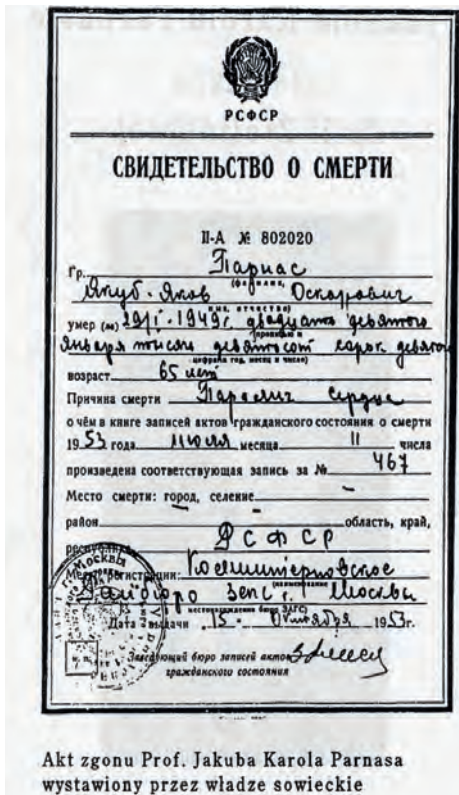 РСФСР
СВИДЕТЕЛЬСТВО О СМЕРТИ
II-А № 802020
Гр. Парнас
(фамилия,
Якуб-Яков Оскарович
имя, отчество)
умер (ла) 29/I-1949г. двадцать девятого
января тысяча девятьсот сорок девятого
цифрами год, месяц и число)
возраст 65 лет
Причина смерти Паралич сердца
о чём в книге записей актов гражданского состояния о смерти
1953 года июля месяца 11 числа
произведена соответствующая запись за № 467
Место смерти: город, селение –
район область, край,
республика РСФСР
Место регистрации: Коминтерновское
(наименование
Райбюро Загс г. Москвы
местонахождение бюро ЗАГС)
Дата выдачи 15 Октября 1953г.
Заведующий бюро записей актов
гражданского состояния
Akt zgonu Prof. Jakuba Karola Parnasa
wystawiony przez władze sowieckie